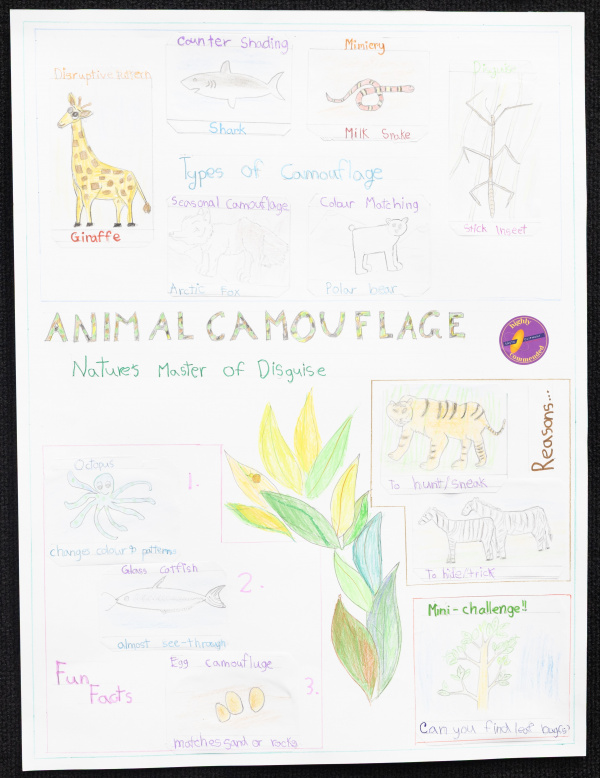 Counter Shading
Mimiery
Disruptive Pattern
Disguise
Shark
Milk Snake
Types of Camouflage
Giraffe
Stick Insect
Seasonal Camouflage
Colour Matching
Arctic Fox
Polar bear
ANIMAL CAMOUFLAGE
highly
commended
Nature's Master of Disguise
Reasons...
To hunt/sneak
To hide/trick
Octopus
1.
changes colour & patterns
Glass catfish
2.
almost see-through
Fun
Facts
Egg camouflage
3.
matches sand or rocks
Mini-challenge!!
Can you find leaf bugs?